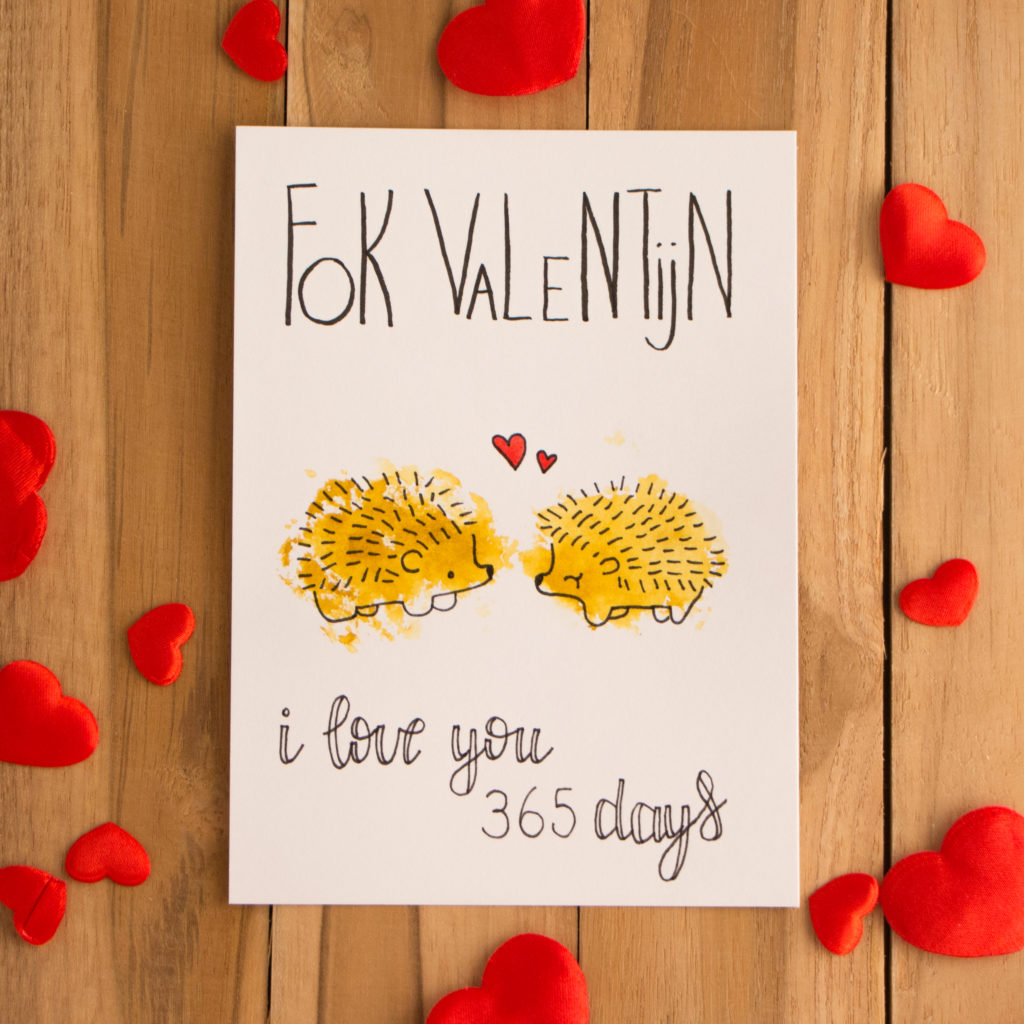 FOK VALENTijN
i love you
365 days